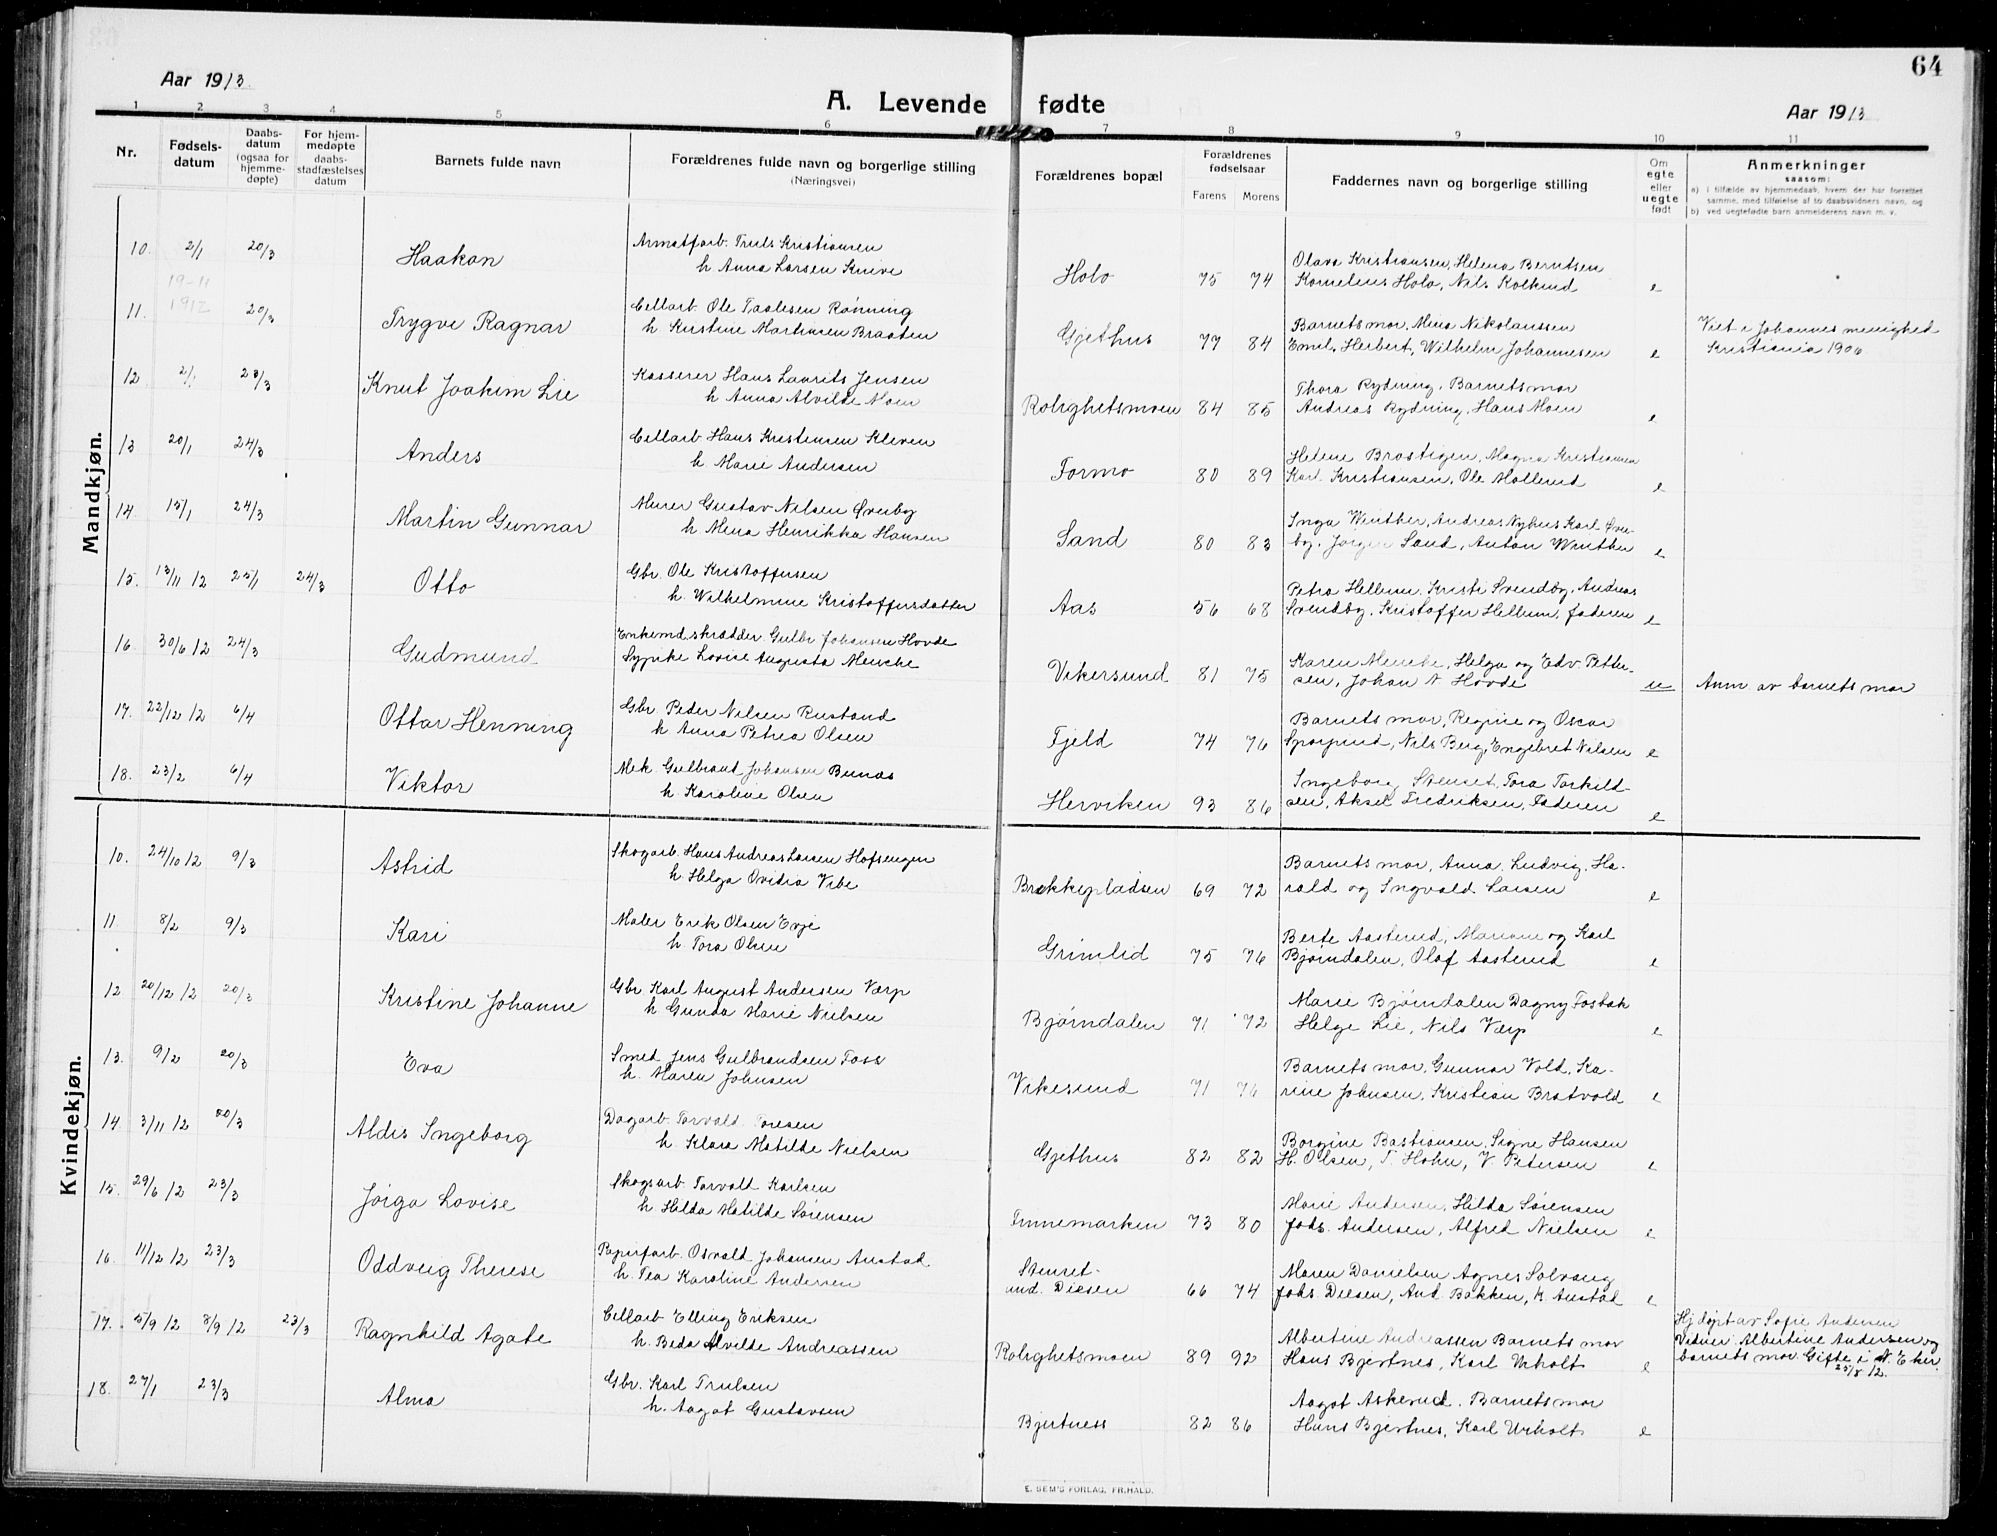 64
Aar 1913.
A. Levende fødte
Aar 1913
1 2 3 4 5 6 7 8 9 10 11
Nr.
Fødsels-
datum
Daabs-
datum
(ogsaa for
hjemme-
døpte)
For hjem-
medøpte
daabs-
stadfæstelses
datum
Barnets fulde navn
Forældrenes fulde navn og borgerlige stilling
(Næringsvei)
Forældrenes bopæl
Forældrenes
fødselsaar
Farens Morens
Faddernes navn og borgerlige stilling
Om
egte
eller
uegte
født
Anmerkninger
saasom:
a) i tilfælde av hjemmedaab, hvem der har forrettet
samme, med tilføielse af to daabsvidners navn, og
b) ved uegtefødte barn anmelderens navn m. v.
Mandkjøn.
10. 2/1 20/3 Haakon
Armatfarb. Truls Kristiansen
h Anna Larsen Knive
Holo 75 74
Olava Kristiansen, Helena Berntsen
Kornelius Holo, Nils Kolknud e
11. 19-11
1912 20/3 Trygve Ragnar
Cellarb. Ole Paalesen Rønning
h Kristine Martinsen Braaten
Gjethus 77 84
Barnets mor, Mina Nikolaussen
Emil, Herbert, Wilhelm Johannesen e
Viet i Johannes menighed
Kristiania 1906
12. 2/1 23/3 Knut Joakim Lie
Kasserer Hans Laurits Jensen
h Anna Alvilde Moen
Rolighetsmoen 84 85
Thora Rydning, Barnets mor
Andreas Rydning, Hans Moen e
13 20/1 24/3 Anders
Cellarb Hans Kristiansen Kleven
h Marie Andersen
Formo 80 89
Helene Brostigen, Magna Kristiansen
Karl Kristiansen, Ole Møllerud e
14. 15/1 24/3 Martin Gunnar
Murer Gustav Nilsen Øverby
h Mina Henrikka Hansen
Sand 80 83
Inga Winther, Andreas Nyhus Karl Øver-
by, Jørgen Sand, Anton Winther e
15. 13/11 12 25/1 24/3 Otto
Gbr. Ole Kristoffersen
h. Wilhelmine Kristoffersdatter
Aas 56 68
Petra Hellum, Kristi Svendby, Andreas
Svendby, Kristoffer Hellum, faderen e
16. 30/6 12 24/3 Gudmund
Enkemd. skrædder Gulbr Johansen Hovde
Sypike Lovise Augusta Mencke
Vikersund 81 75
Karen Mencke, Helga og Edv. Petter-
sen, Johan A Hovde u
Anm av barnets mor
17. 22/12 12 6/4 Ottar Henning
Gbr Peder Nilsen Rustand
h Anna Petrea Olsen
Fjeld 74 76
Barnets mor, Regine og Oscar
Sporpind, Nils Berg, Engebret Nilsen e
18. 23/2 6/4 Viktor
Mek Gulbrand Johansen Bunæs
h Karoline Olsen
Herviken 93 86
Ingeborg Stenset, Tora Torkild-
sen, Aksel Fredriksen, Faderen e
Kvindekjøn.
10. 24/10 12 9/3 Astrid
Skogarb. Hans Andreas Larsen Hofsengen
h. Helga Ovidia Vibe
Brekkepladsen 69 72
Barnets mor, Anna, Ludvig, Ha-
rald og Ingvald Larsen e
11. 8/2 9/3 Kari
Maler Erik Olsen Evje
h. Tora Olsen
Grimlid 75 76
Berte Aasterud, Mariane og Karl
Bjørndalen, Olaf Aasterud e
12 20/12 12 20/3 Kristine Johanne
Gbr Karl August Andersen Værp
h Gunda Marie Nielsen
Bjørndalen 71 72
Marie Bjørndalen Dagny Fosbak
Helge Lie, Nils Værp e
13. 9/2 20/3 Eva
Smed Jens Gulbrandsen Foss
h. Maren Johnsen
Vikesund 71 76
Barnets mor, Gunnar Vold, Ka-
rine Johnsen, Kristian Bratvold e
14. 3/11 12 20/3 Aldis Ingeborg
Dagarb. Torvald Toresen
h. Klara Matilde Nielsen
Gjethus 82 82
Borgine Bastiansen, Signe Hansen
H. Olsen, T. Hohn, V. Petersen e
15. 29/6 12 23/3 Jørga Lovise
Skogsarb. Torvald Karlsen
h Hilda Matilde Sørensen
Finnemarken 73 80
Marie Andersen, Hilda Sørensen
Johs. Andersen, Alfred Nielsen e
16. 11/12 12 23/3 Oddveig Therese
Papirfarb. Osvald Johansen Austad
h. Tea Karoline Andersen
Stenset-
und. Diesen 66 74
Maren Danielsen Agnes Solvang
Johs. Diesen, And. Bakken, K. Austad e
17. 5/9 12 8/9 12 23/3 Ragnhild Agate
Cellarb Elling Eriksen
h. Beda Alvilde Andreassen
Rolighetsmoen 89 92
Albertine Andreassen Barnets mor
Hans Bjertnes, Karl Urholt e
Hj døpt av Sofie Andersen
Vidner: Albertine Andersen og
barnets mor Gifte i N. Eker
25/8 12.
18. 27/1 23/3 Alma
Gbr. Karl Trulsen
h. Aagot Gustavsen
Bjertness 82 86
Aagot Askerud. Barnets mor
Hans Bjertnes, Karl Urholt e
E. SEM'S FORLAG, FR.HALD.